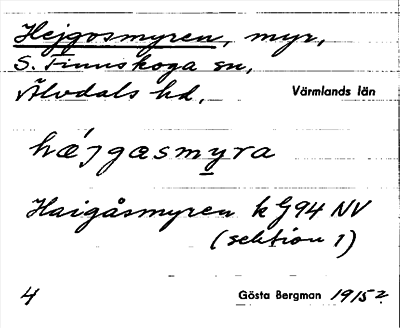 Hejgosmyren, myr,
S. Finnskoga sn,
Älvdals hd. Värmlands län
hǽjgasmyra
Haigåsmyren k G94 NV
(sektion 1)
4 Gösta Bergman 1915?